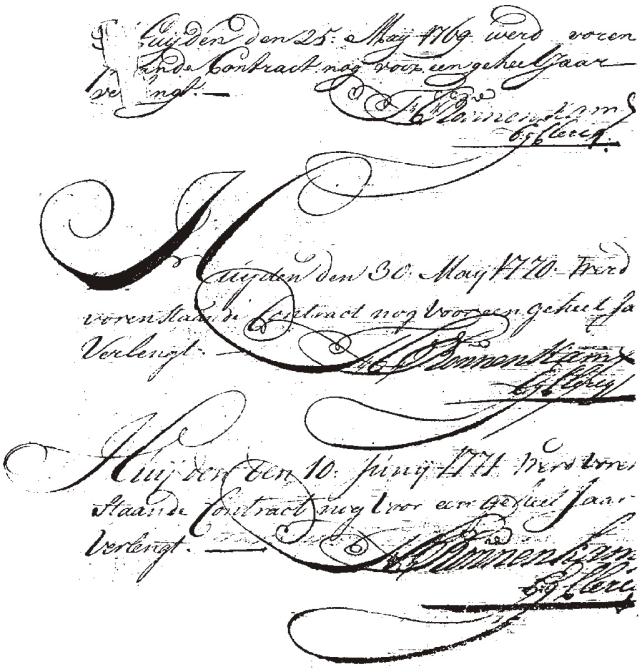 Huyden den 25: May 1769 werd voren
staande Contract nog voor een geheel Jaar
verlengt.
Bonnenkamp
bij Clercq
Huyden den 30. May 1770. Werd
voren staande Contract nog voor een geheel Ja
Verlengt.
Bonnenkamp
bij Clercq
Huijden den 10: Junij 1771. Werd voren
staande Contract nog Voor een geheel Jaar
Verlengt.
Bonnenkam
bij Clercq